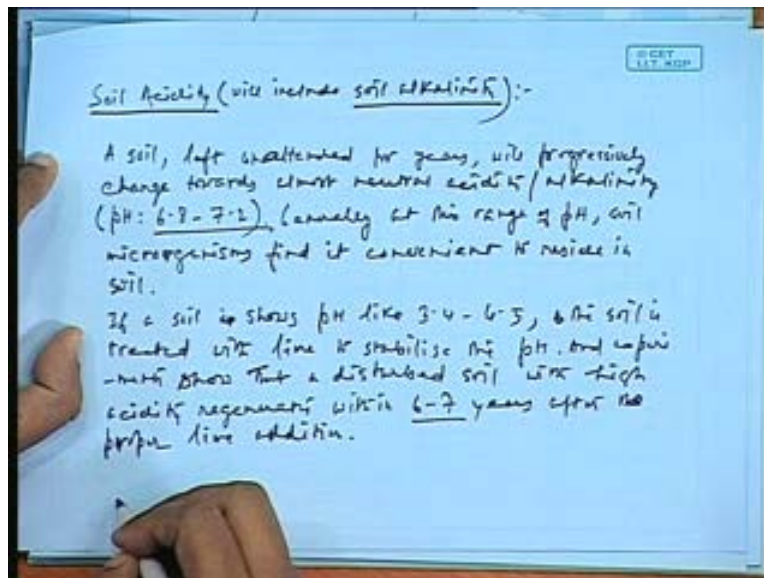 © CET
I.I.T. KGP
Soil Acidity (will include soil alkalinity):-
A soil, left unattended for years, will progressively
change towards almost neutral acidity/alkalinity
(pH: 6.8 - 7.2). at this range of pH, soil
microorganisms find it convenient to reside in
soil.
If a soil is shows pH like 3.4 - 6.5, the soil is
treated with lime to stabilise the pH. And experi
-ments show that a disturbed soil with high
acidity regenerates within 6-7 years after the
proper lime addition.